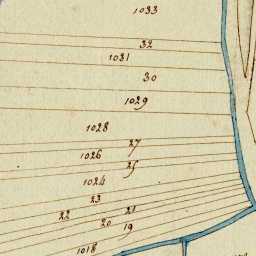 1033
32
1031
30
1029
1028
27
1026
25
1024
23
22
21
20
19
1018